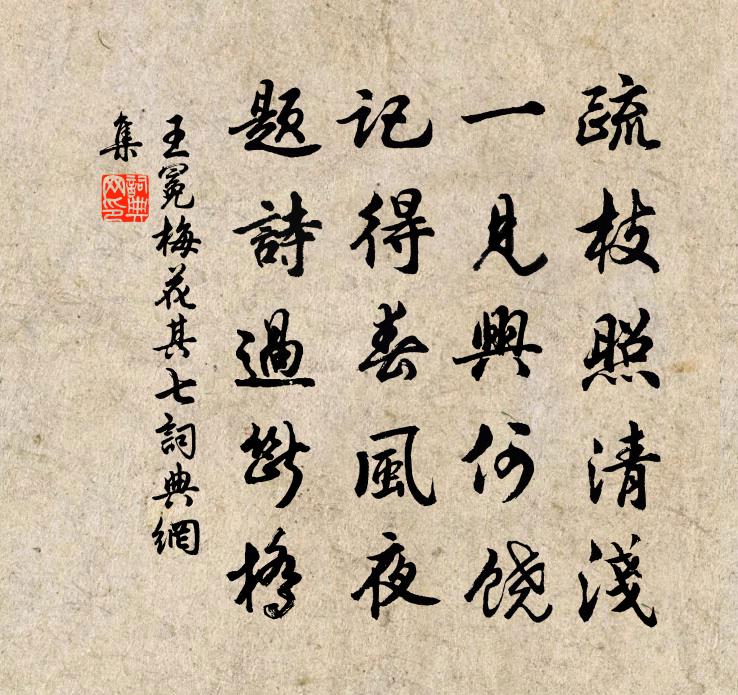 疏枝照清淺
一見興何饒
記得春風夜
題詩過斷橋
王冕梅花其七詞典網
集
詞典
网印